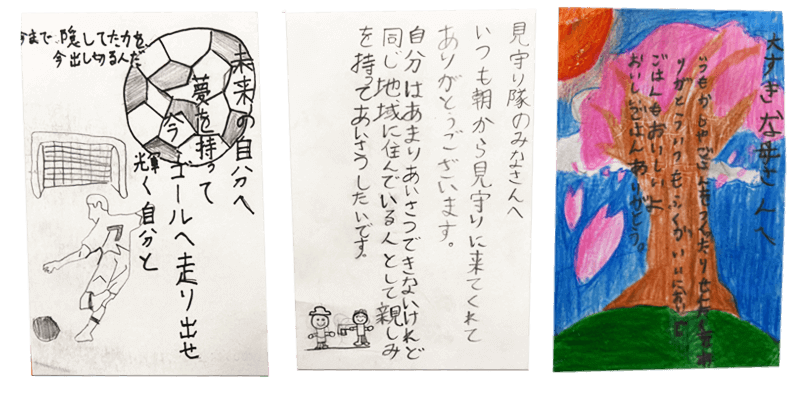 未来の自分へ
夢を持って
今 ゴールへ走り出せ
輝く自分と
今まで、隠してた力を、
今出し切るんだ。
見守り隊のみなさんへ
いつも朝から見守りに来てくれて
ありがとうございます。
自分はあまりあいさつできないけれど
同じ地域に住んでいる人として親しみ
を持ってあいさつしたいです。
大すきな母さんへ
いつもかじやごはんをつくったりせんたく
りがとういつもふくがいいにおい
ごはんもおいしいよ
おいしいごはんありがとう。